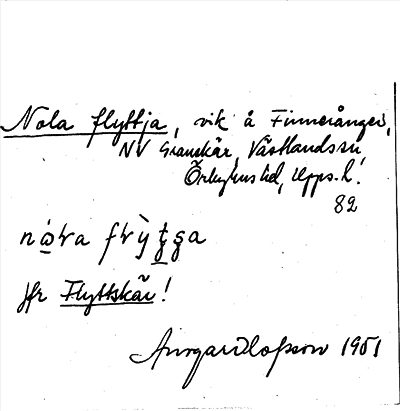 Nola flyttja, vik å Finnerånger,
NV Granskär, Västlandssn,
Örbyhus hd, Upps. l.
82
flyttskär
jfr Flyttskär!
Ansgar Olofsson 1951